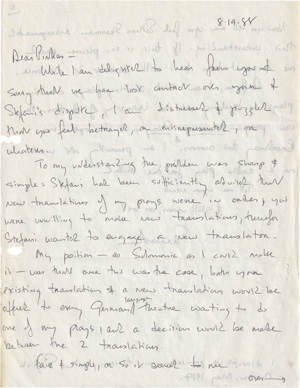 8·19·88
Dear Pinkas —
While I am delighted to hear from you &
sorry that we have lost contact over yours &
Stefani's dispute, I am distressed & puzzled
that you feel betrayed, or misrepresented, or
whatever.
To my understanding the problem was sharp &
simple: Stefani had been sufficiently advised that
new translations of my plays were in order; you
were unwilling to make new translations; therefor
Stefani wanted to engage a new translator.
My position — as Solomonic as I could make
it — was that since this was the case, both your
existing translation & a new translation would be
offered to every German language theatre wanting to do
one of my plays, and a decision would be made
between the 2 translations.
Fair & simple, or so it seemed to me.
over